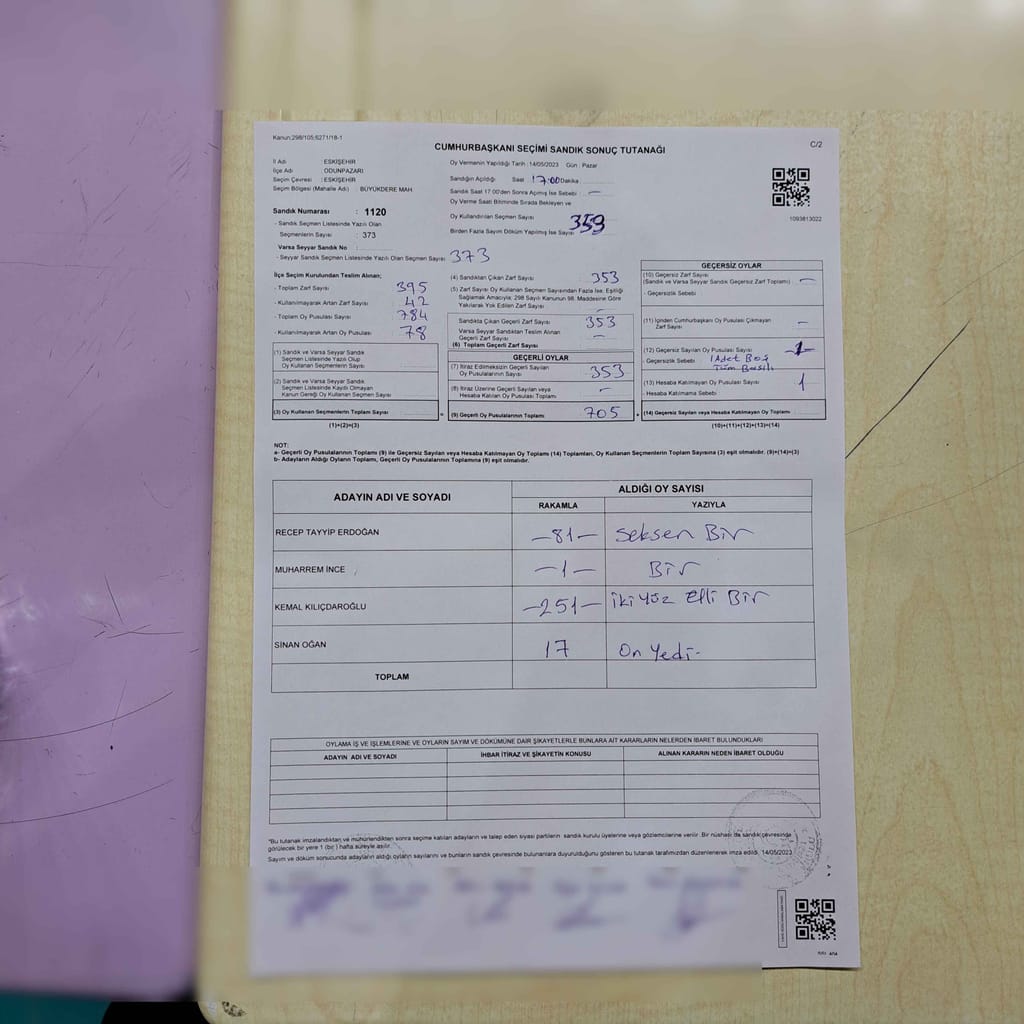 Kanun:298/105;6271/18-1
CUMHURBAŞKANI SEÇİMİ SANDIK SONUÇ TUTANAĞI
C/2
İl Adı : ESKİŞEHİR
İlçe Adı : ODUNPAZARI
Seçim Çevresi : ESKİŞEHİR
Seçim Bölgesi (Mahalle Adı) : BÜYÜKDERE MAH.
Sandık Numarası : 1120
- Sandık Seçmen Listesinde Yazılı Olan
Seçmenlerin Sayısı : 373
Varsa Seyyar Sandık No :
- Seyyar Sandık Seçmen Listesinde Yazılı Olan Seçmen Sayısı 373
Oy Vermenin Yapıldığı Tarih :14/05/2023 Gün : Pazar
Sandığın Açıldığı Saat 17:00 Dakika
Sandık Saat 17.00'den Sonra Açılmış İse Sebebi : –
Oy Verme Saati Bitiminde Sırada Bekleyen ve
Oy Kullandırılan Seçmen Sayısı 359
Birden Fazla Sayım Döküm Yapılmış İse Sayısı
1093813022
İlçe Seçim Kurulundan Teslim Alınan;
- Toplam Zarf Sayısı 395
- Kullanılmayarak Artan Zarf Sayısı 42
- Toplam Oy Pusulası Sayısı 784
- Kullanılmayarak Artan Oy Pusulası 78
(1) Sandık ve Varsa Seyyar Sandık
Seçmen Listesinde Yazılı Olup
Oy Kullanan Seçmenlerin Sayısı
(2) Sandık ve Varsa Seyyar Sandık
Seçmen Listesinde Kayıtlı Olmayan
Kanun Gereği Oy Kullanan Seçmen Sayısı
(3) Oy Kullanan Seçmenlerin Toplam Sayısı =
(1)+(2)=(3)
(4) Sandıktan Çıkan Zarf Sayısı 353
(5) Zarf Sayısı Oy Kullanan Seçmen Sayısından Fazla İse, Eşitliği
Sağlamak Amacıyla; 298 Sayılı Kanunun 98. Maddesine Göre
Yakılarak Yok Edilen Zarf Sayısı –
Sandıkta Çıkan Geçerli Zarf Sayısı 353
Varsa Seyyar Sandıktan Teslim Alınan
Geçerli Zarf Sayısı –
(6) Toplam Geçerli Zarf Sayısı
GEÇERLİ OYLAR
(7) İtiraz Edilmeksizin Geçerli Sayılan
Oy Pusulalarının Sayısı 353
(8) İtiraz Üzerine Geçerli Sayılan veya
Hesaba Katılan Oy Pusulası Toplamı –
(9) Geçerli Oy Pusulalarının Toplamı 705 +
GEÇERSİZ OYLAR
(10) Geçersiz Zarf Sayısı
(Sandık ve Varsa Seyyar Sandık Geçersiz Zarf Toplamı) –
- Geçersizlik Sebebi
(11) İçinden Cumhurbaşkanı Oy Pusulası Çıkmayan
Zarf Sayısı –
(12) Geçersiz Sayılan Oy Pusulası Sayısı -1-
- Geçersizlik Sebebi 1 Adet Boş
Tüm Basılı
(13) Hesaba Katılmayan Oy Pusulası Sayısı 1
- Hesaba Katılmama Sebebi
(14) Geçersiz Sayılan veya Hesaba Katılmayan Oy Toplamı
(10)+(11)+(12)+(13)=(14)
NOT:
a- Geçerli Oy Pusulalarının Toplamı (9) ile Geçersiz Sayılan veya Hesaba Katılmayan Oy Toplamı (14) Toplamları, Oy Kullanan Seçmenlerin Toplam Sayısına (3) eşit olmalıdır. (9)+(14)=(3)
b- Adayların Aldığı Oyların Toplamı, Geçerli Oy Pusulalarının Toplamına (9) eşit olmalıdır.
ADAYIN ADI VE SOYADI
ALDIĞI OY SAYISI
RAKAMLA YAZIYLA
RECEP TAYYİP ERDOĞAN -81- Seksen Bir
MUHARREM İNCE -1- Bir
KEMAL KILIÇDAROĞLU -251- İki Yüz Elli Bir
SİNAN OĞAN 17 On Yedi-
TOPLAM
OYLAMA İŞ VE İŞLEMLERİNE VE OYLARIN SAYIM VE DÖKÜMÜNE DAİR ŞİKAYETLERLE BUNLARA AİT KARARLARIN NELERDEN İBARET BULUNDUKLARI
ADAYIN ADI VE SOYADI İHBAR İTİRAZ VE ŞİKAYETİN KONUSU ALINAN KARARIN NEDEN İBARET OLDUĞU
*Bu tutanak imzalandıktan ve mühürlendikten sonra seçime katılan adayların ve talep eden siyasi partilerin sandık kurulu üyelerine veya gözlemcilerine verilir. Bir nüshası da sandık çevresinde
görülecek bir yere 1 (bir ) hafta süreyle asılır.
Sayım ve döküm sonucunda adayların aldığı oyların sayılarını ve bunların sandık çevresinde bulunanlara duyurulduğunu gösteren bu tutanak tarafımızdan düzenlenerek imza edildi. 14/05/2023